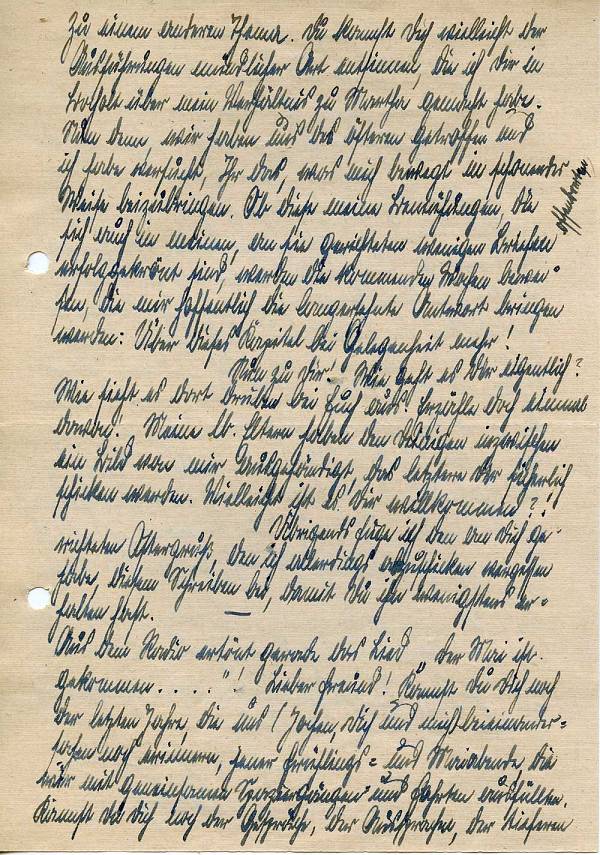 Zu einem anderen Thema. Du kannst Dich vielleicht der
Ausführungen mündlicher Art entsinnen, die ich Dir in
über mein Verhältnis zu Martha gemacht habe.
Nun denn, wir haben uns des öfteren getroffen und
ich habe versucht, Ihr das, was mich bewegt in schonender
Weise beizubringen. Ob diese meine Bemühungen, die
sich auch in meinen, an sie gerichteten wenigen Briefen
offenbarten
erfolggekrönt sind, werden die kommenden Wochen bewei-
sen, die mir hoffentlich die langersehnte Antwort bringen
werden: Über dieses Kapitel bei Gelegenheit mehr!
Nun zu Dir! Wie geht es Dir eigentlich?
Wie sieht es dort drüben bei Euch aus? Erzähle doch einmal
davon! Meine lb. Eltern haben den Deinigen inzwischen
ein Bild von mir ausgehändigt, das letztere Dir sicherlich
schicken werden. Vielleicht ist es Dir willkommen?!
Übrigends füge ich den an Dich ge-
richteten Ostergruß, den ich allerdings abzuschicken vergessen
habe, diesem Schreiben bei, damit Du ihn wenigstens er=
halten hast.
Aus dem Radio ertönt gerade das Lied "Der Mai ist
gekommen . . . . ."! Lieber Freund! Kannst Du Dich noch
der letzten Jahre, die uns (Jochen, Dich und mich) beieinander=
sahen noch erinnern, jener Frühlings= und Maiabende, die
wir mit gemeinsamen Spaziergängen und Fahrten ausfüllten.
Kannst Du Dich noch der Gespräche, der Aussprachen, der tieferen